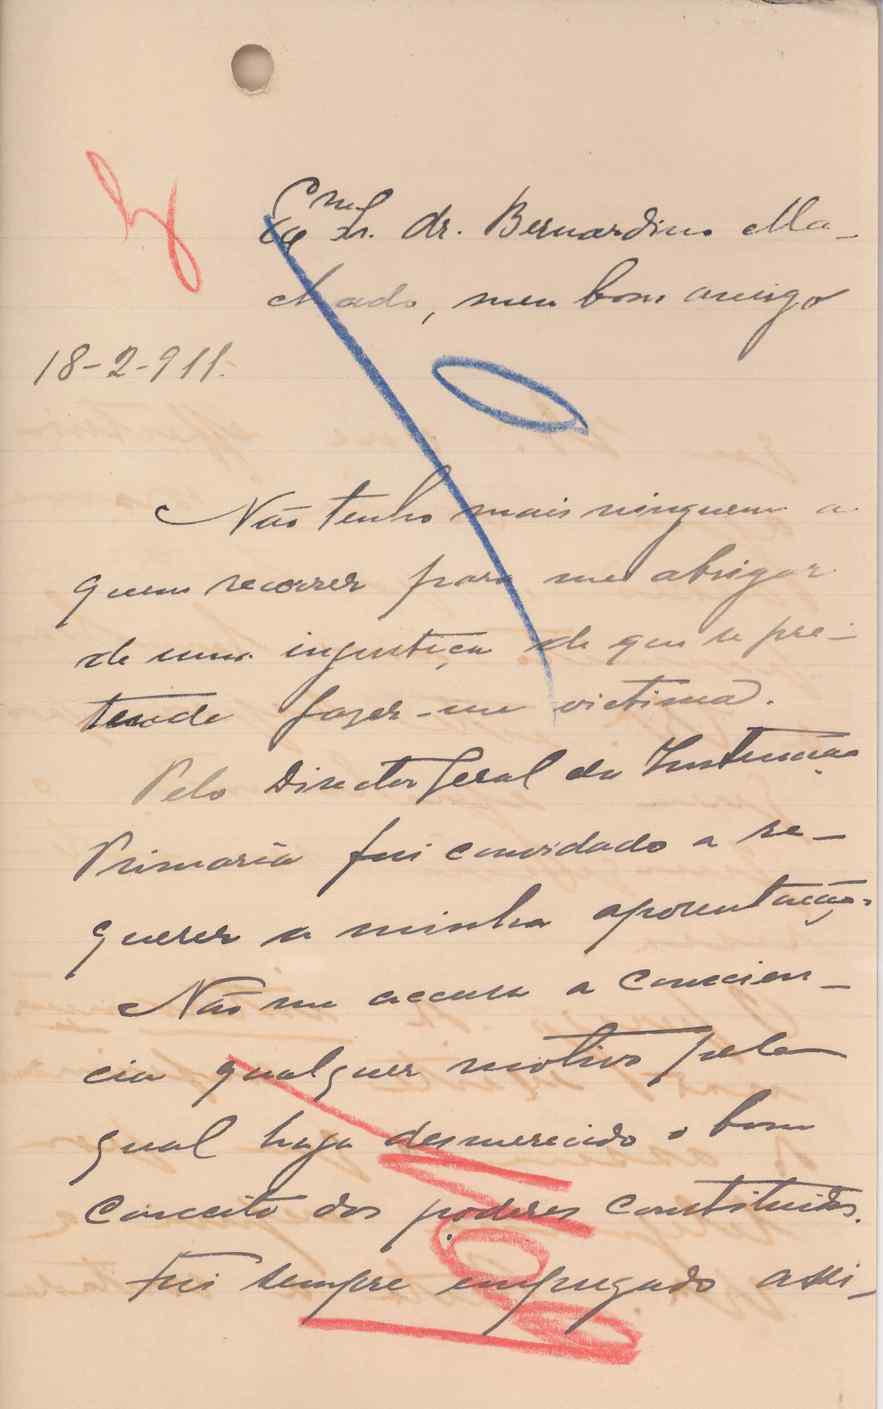 Exmo Sr. dr. Bernardino Ma-
chado, meu bom amigo
18-2-911.
Não tenho mais ninguem a
quem recorrer para me abrigar
de uma injustiça de que se pre-
tende fazer-me victima.
Pelo Director Geral da Instrucção
Primaria fui convidado a re-
querer a minha aposentação.
Não me accusa a concien-
cia qualquer motivo pelo
qual haja desmerecido o bom
conceito dos poderes constituidos.
Fui sempre empregado assi-